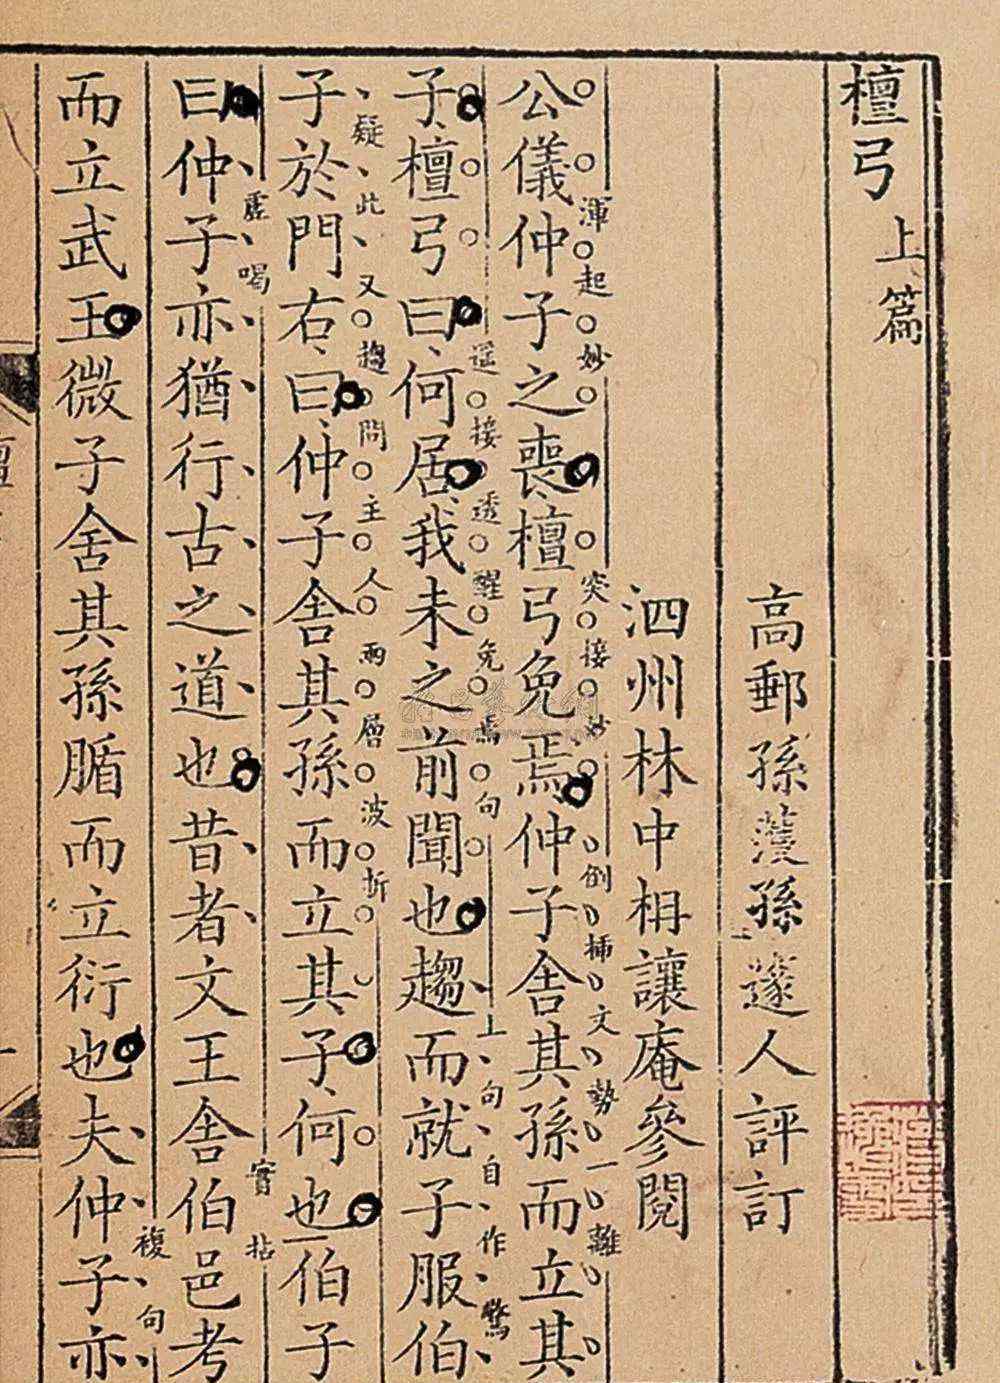 檀弓 上篇
高郵孫濩孫邃人評訂
泗州林中枏讓庵參閱
公儀仲子之喪檀弓免焉仲子舍其孫而立其
渾起妙
突接妙
倒插文勢一離
子檀弓曰何居我未之前聞也趨而就子服伯
遥接透醒免焉句
上句自作驚
子於門右曰仲子舍其孫而立其子何也伯子
疑此又趨問主人兩層波折
曰仲子亦猶行古之道也昔者文王舍伯邑考
虛喝
實拈
而立武王微子舍其孫腯而立衍也夫仲子亦
複句